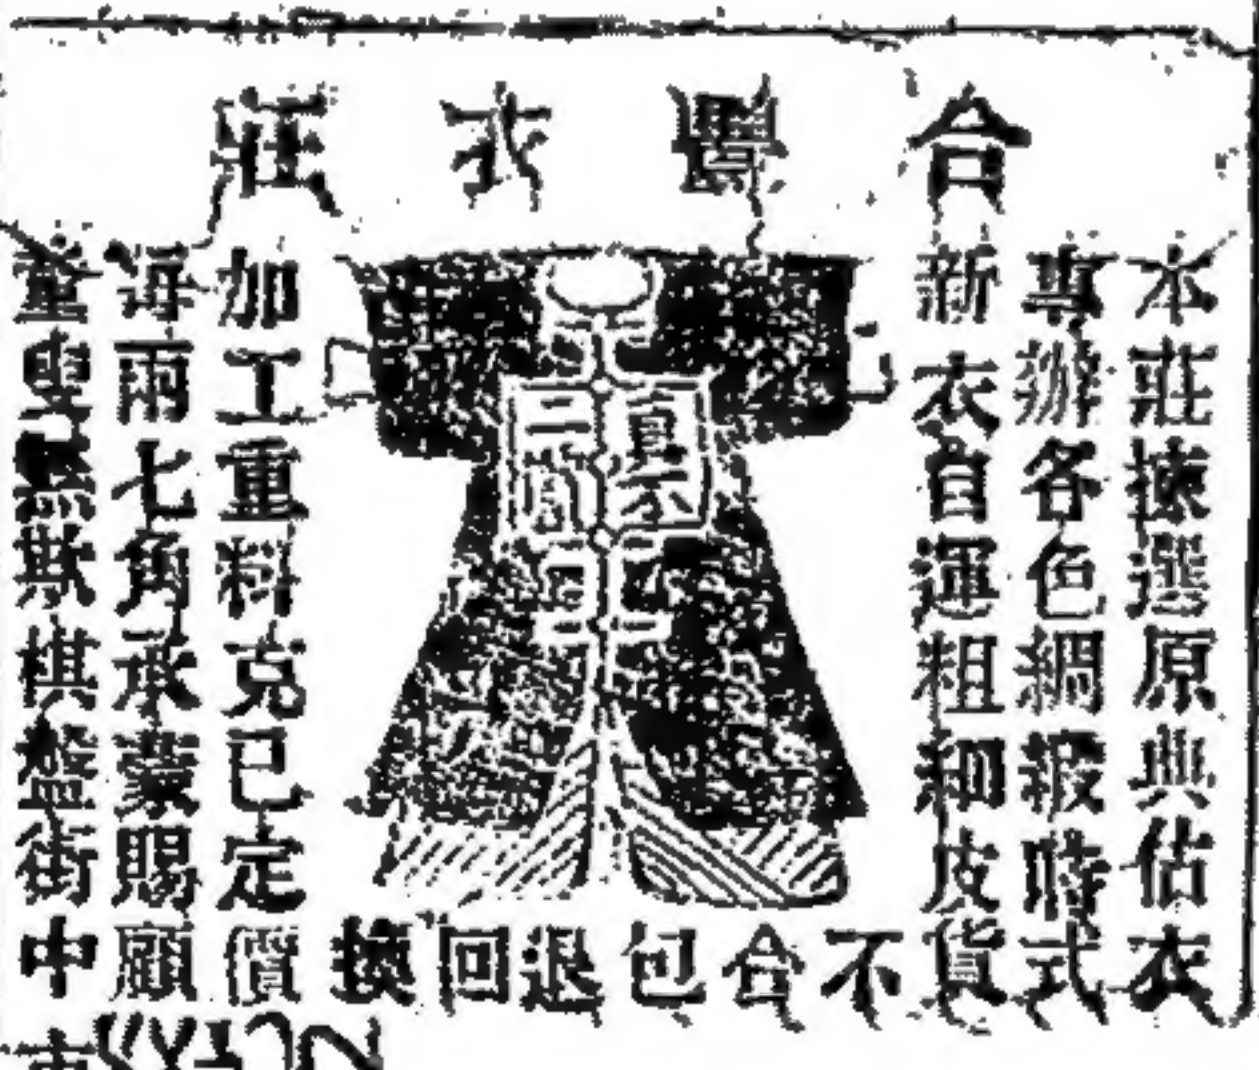 合豐衣莊
本莊揀選原典估衣
專辦各色綢緞時式
新衣自運粗細皮貨
真不二價
不合包退回換
加工重料克已定價
每兩七角承蒙賜顧
童叟無欺棋盤街中